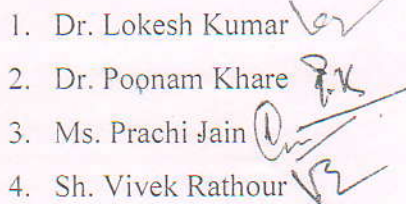 1. Dr. Lokesh Kumar
2. Dr. Poonam Khare P.K
3. Ms. Prachi Jain
4. Sh. Vivek Rathour